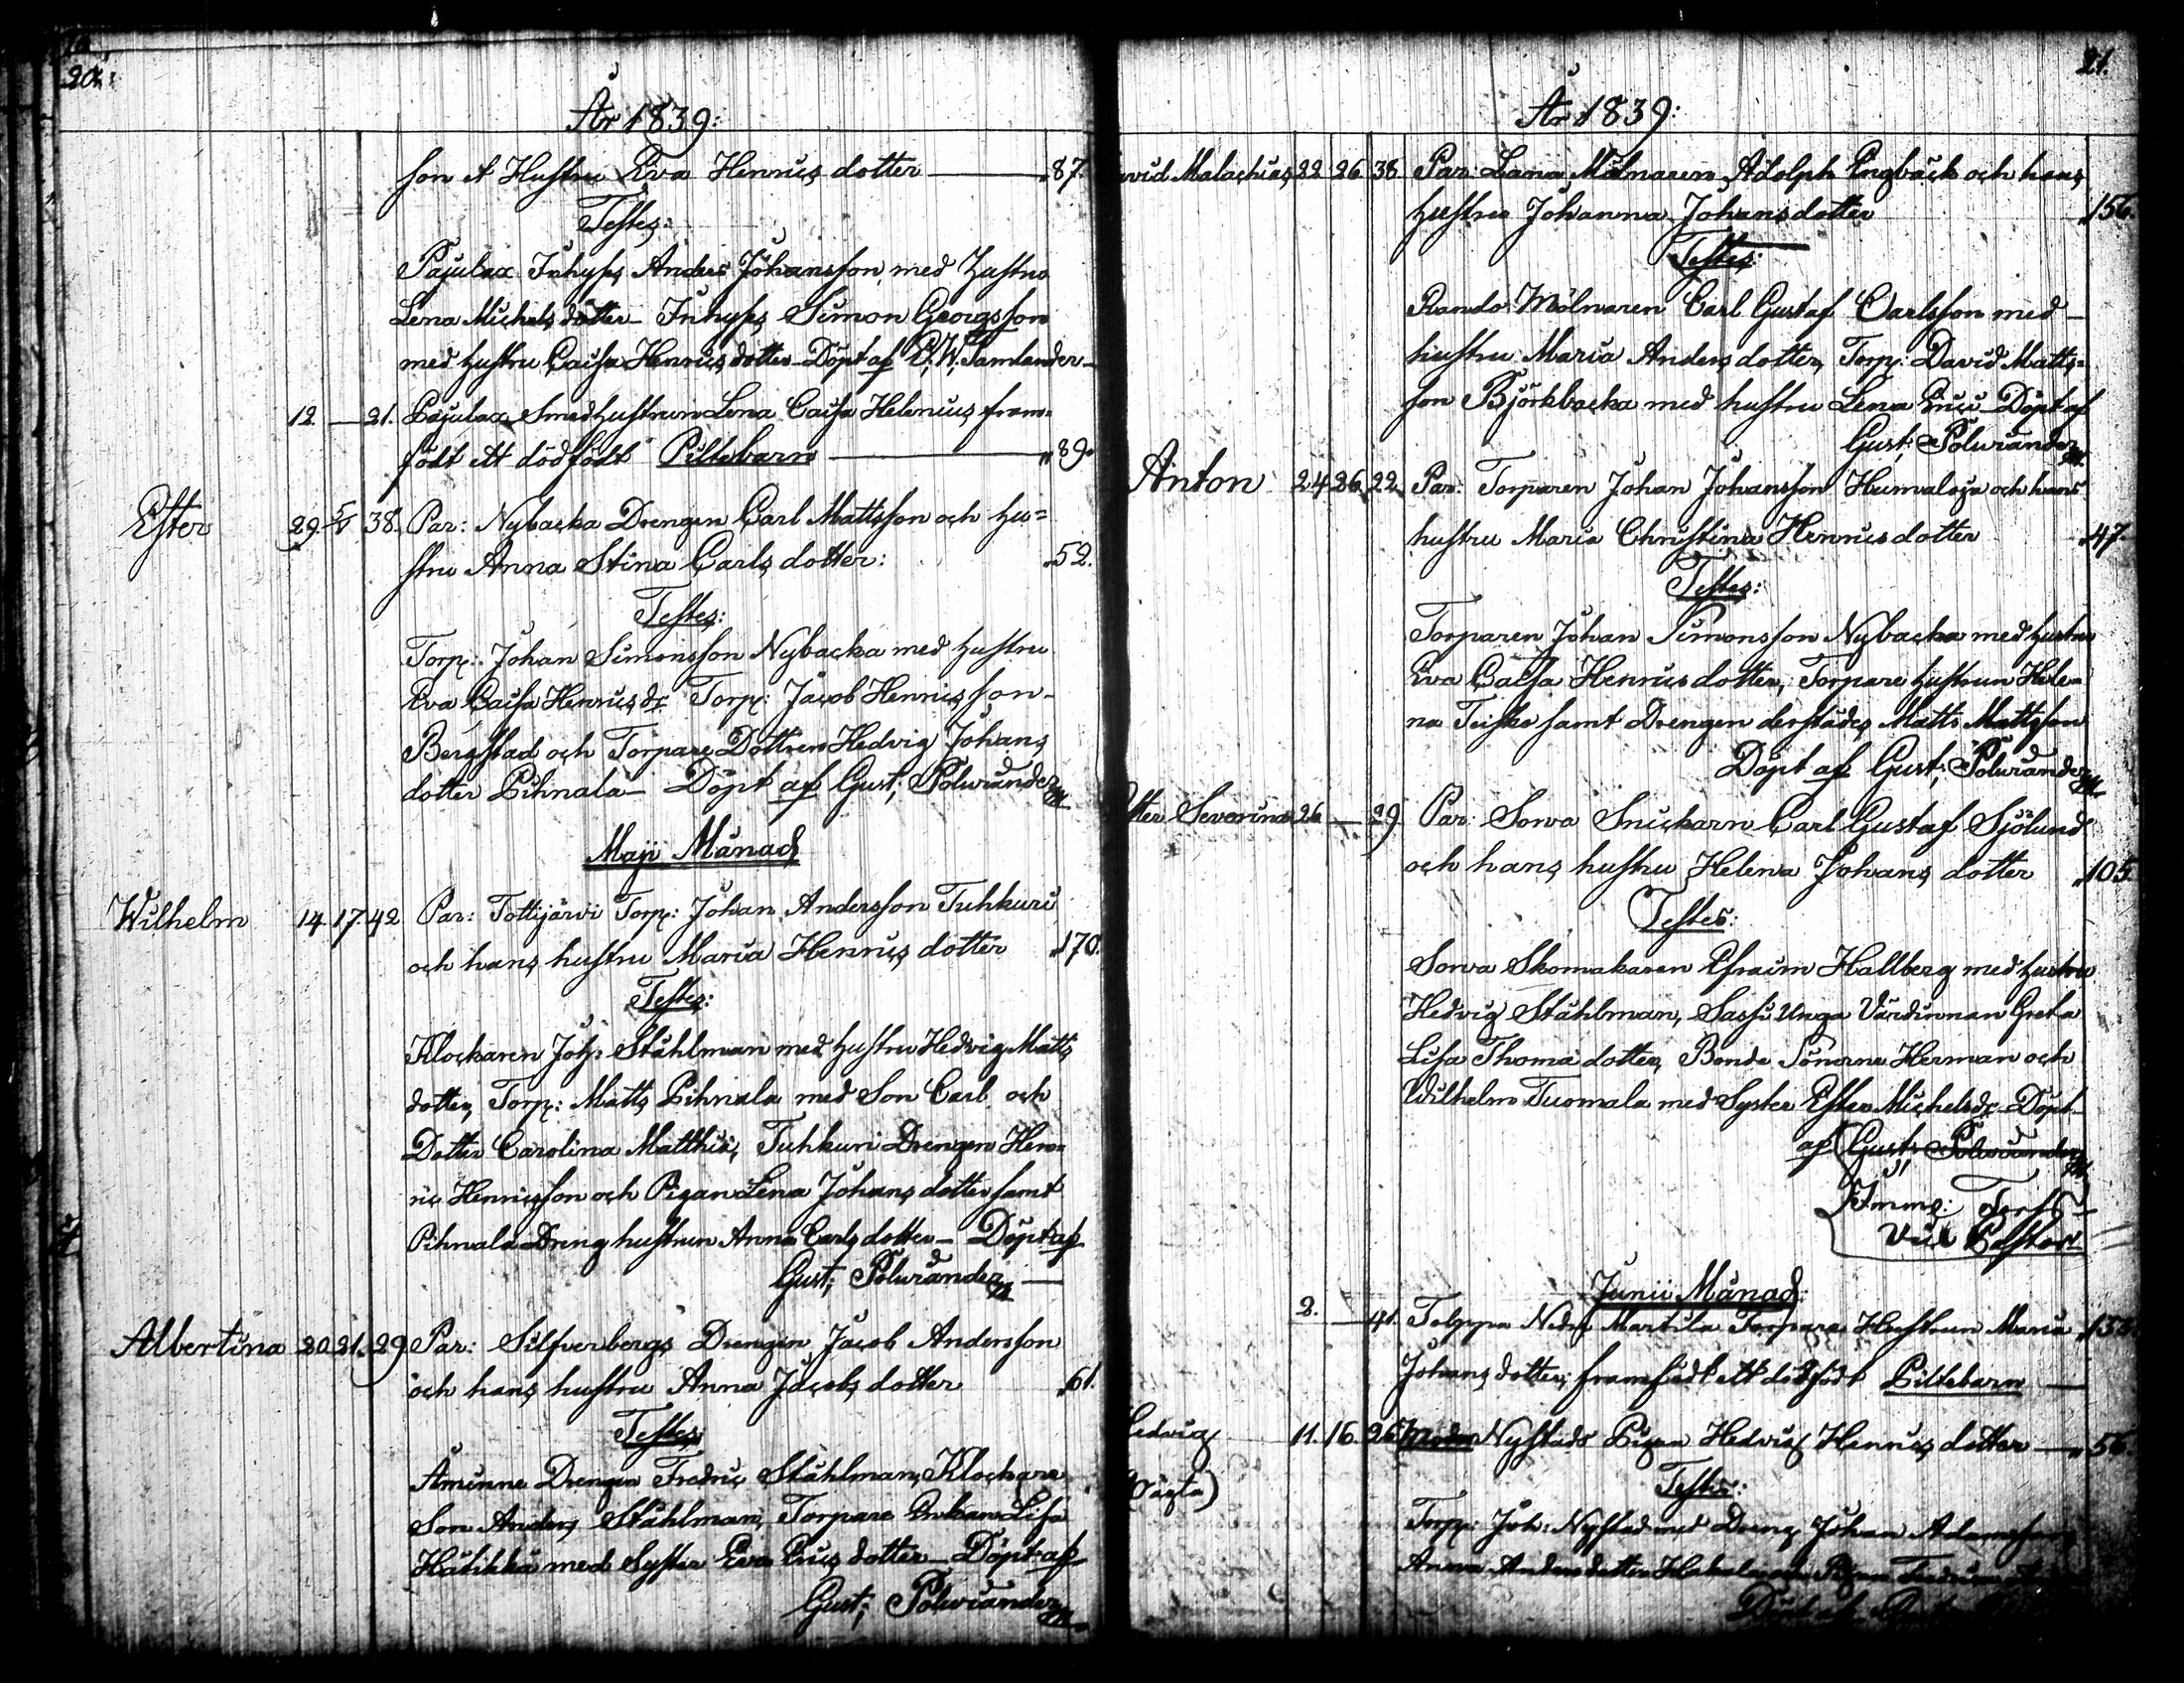 20.
År 1839:
son et Hustru Eva Henrics dotter — 87.
Testes:
Pajulax Inhyses Anders Johansson med Hustru
Lena Michels dotter Inhyses Simon Georgsson
med hustru Caisa Henrics dotter Döpt af C. W. Samlander
12. — 21. Pajulax Smedhustrun Lena Caisa Helenius, fram=
födt ett dödfödt Piltebarn — 89.
Ester 29. 5/5 38. Par: Nybacka Drengen Carl Mattsson och hu=
stru Anna Stina Carls dotter: 52.
Testes:
Torp: Johan Simonsson Nybacka med hustru
Eva Caisa Henricsdr Torp: Jacob Henricsson
Bergstad och Torpare Dottren Hedvig Johans
dotter Pihnala — Döpt af Gust; Polviander
Maji Månad
Wilhelm 14. 17. 42 Par: Tottijärvi Torp: Johan Andersson Tuhkuri
och hans hustru Maria Henrics dotter 170.
Testes:
Klockaren Joh: Ståhlman med hustru Hedvig Matts
dotter, Torp: Matts Pihnala med Son Carl och
Dotter Carolina Matthii, Tuhkuri Drengen Hen=
ric Henricsson och Pigan Lena Johans dotter samt
Pihnala Dreng hustrun Anna Carls dotter — Döpt af
Gust; Polviander —
Albertina 20. 21. 29 Par: Silfverbergs Drengen Jacob Andersson
och hans hustru Anna Jacobs dotter 61.
Testes
Aminne Drengen Fredric Ståhlman, Klockare
Son Anders Ståhlman, Torpare Enkan Lisa
Hätikkä med Syster Eva Erics dotter — Döpt af
Gust; Polviander
21.
År 1839:
avid Malachias 22 26. 38 Par: Lana Mölnaren Adolph Engbäck och hans
hustru Johanna Johans dotter 156.
Testes:
Rando Mölnaren Carl Gustaf Carlsson med
hustru Maria Anders dotter, Torp: David Matts=
son Björkbacka med hustru Lena Erici — Döpt af
Gust; Polviander
Anton 24. 26. 22 Par: Torparen Johan Johansson Humaloja och hans
hustru Maria Christina Henrics dotter 47.
Testes:
Torparen Johan Simonsson Nybacka med hustru
Eva Caisa Henrics dotter, Torpare hustrun Hele=
na Teisko samt Drengen derstädes Matts Mattsson
Döpt af Gust; Polviander
Severina 26 — 29 Par: Sorva Snickarn Carl Gustaf Sjölund
och hans hustru Helena Johans dotter 105.
Testes:
Sorva Skomakaren Efraim Hallberg med hustru
Hedvig Ståhlman, Sassi Unga Värdinnan Greta
Lisa Thomæ dotter, Bonde Sönerne Herman och
Wilhelm Tuomala med Syster Ester Michelsdr Döpt
af Gust; Polviander
Vice Pastor
Junii Månad:
2. — 41. Nedre Martila Torpare Hustrun Maria
Johans dotter, framfödt ett dödfödt Piltebarn —
Hedvig 11. 16. 26 Moder Nystads Pigan Hedvig Henrics dotter — 56.
(oägta)
Testes:
Torp: Joh: Nystad med Dreng Johan Adamsson
Anna Anders dotter Pigan
Döpt af